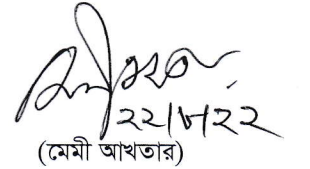 ২২|৮|২২
(মেমী আখতার)